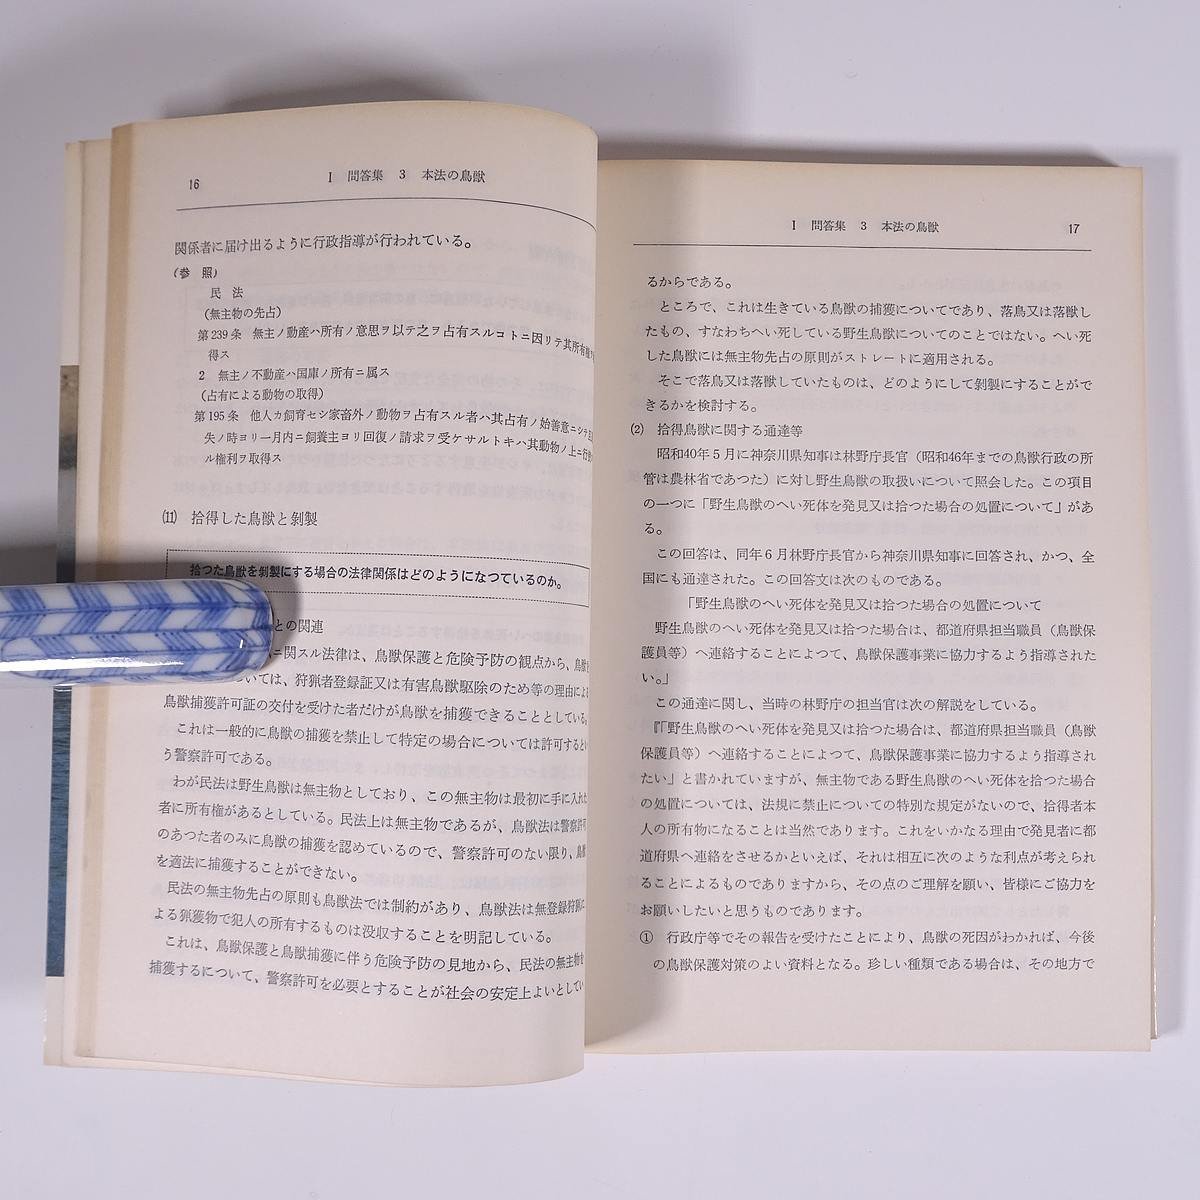 16
I 問答集 3 本法の鳥獣
関係者に届け出るように行政指導が行われている。
(参 照)
民 法
(無主物の先占)
第239条 無主ノ動産ハ所有ノ意思ヲ以テ之ヲ占有スルコトニ因リテ其所有
得ス
2 無主ノ不動産ハ国庫ノ所有ニ属ス
(占有による動物の取得)
第195条 他人カ飼育セシ家畜外ノ動物ヲ占有スル者ハ其占有ノ始善意ニシテ
失ノ時ヨリ一月内ニ飼養主ヨリ回復ノ請求ヲ受ケサルトキハ其動物ノ上ニ行
ル権利ヲ取得ス
(11) 拾得した鳥獣と剝製
拾つた鳥獣を剝製にする場合の法律関係はどのようになつているのか。
との関連
ニ関スル法律は、鳥獣保護と危険予防の観点から、鳥獣
ついては、狩猟者登録証又は有害鳥獣駆除のため等の理由によ
鳥獣捕獲許可証の交付を受けた者だけが鳥獣を捕獲できることとしている。
これは一般的に鳥獣の捕獲を禁止して特定の場合については許可するとい
う警察許可である。
わが民法は野生鳥獣は無主物としており、この無主物は最初に手に入れた
者に所有権があるとしている。民法上は無主物であるが、鳥獣法は警察許可
のあつた者のみに鳥獣の捕獲を認めているので、警察許可のない限り、鳥獣
を適法に捕獲することができない。
民法の無主物先占の原則も鳥獣法では制約があり、鳥獣法は無登録狩猟に
よる猟獲物で犯人の所有するものは没収することを明記している。
これは、鳥獣保護と鳥獣捕獲に伴う危険予防の見地から、民法の無主物を
捕獲するについて、警察許可を必要とすることが社会の安定上よいとしてい
I 問答集 3 本法の鳥獣
17
るからである。
ところで、これは生きている鳥獣の捕獲についてであり、落鳥又は落獣し
たもの、すなわちへい死している野生鳥獣についてのことではない。へい死
した鳥獣には無主物先占の原則がストレートに適用される。
そこで落鳥又は落獣していたものは、どのようにして剝製にすることがで
きるかを検討する。
(2) 拾得鳥獣に関する通達等
昭和40年5月に神奈川県知事は林野庁長官(昭和46年までの鳥獣行政の所
管は農林省であつた)に対し野生鳥獣の取扱いについて照会した。この項目
の一つに「野生鳥獣のへい死体を発見又は拾つた場合の処置について」があ
る。
この回答は、同年6月林野庁長官から神奈川県知事に回答され、かつ、全
国にも通達された。この回答文は次のものである。
「野生鳥獣のへい死体を発見又は拾つた場合の処置について
野生鳥獣のへい死体を発見又は拾つた場合は、都道府県担当職員(鳥獣保
護員等)へ連絡することによつて、鳥獣保護事業に協力するよう指導された
い。」
この通達に関し、当時の林野庁の担当官は次の解説をしている。
『「野生鳥獣のへい死体を発見又は拾つた場合は、都道府県担当職員(鳥獣
保護員等)へ連絡することによつて、鳥獣保護事業に協力するよう指導され
たい」と書かれていますが、無主物である野生鳥獣のへい死体を拾つた場合
の処置については、法規に禁止についての特別な規定がないので、拾得者本
人の所有物になることは当然であります。これをいかなる理由で発見者に都
道府県へ連絡をさせるかといえば、それは相互に次のような利点が考えられ
ることによるものでありますから、その点のご理解を願い、皆様にご協力を
お願いしたいと思うものであります。
① 行政庁等でその報告を受けたことにより、鳥獣の死因がわかれば、今後
の鳥獣保護対策のよい資料となる。珍しい種類である場合は、その地方で